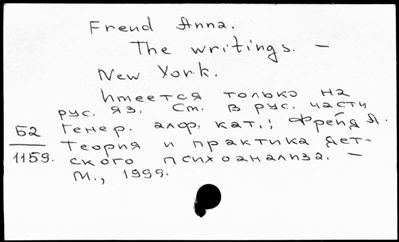 Freud Anna.
The writings. –
New York.
Имеется только на
рус. яз. См. в рус. части
Генер. алф. кат.; Фрейд А.
Б2
1159.
Теория и практика дет-
ского психоанализа. –
М., 1999.